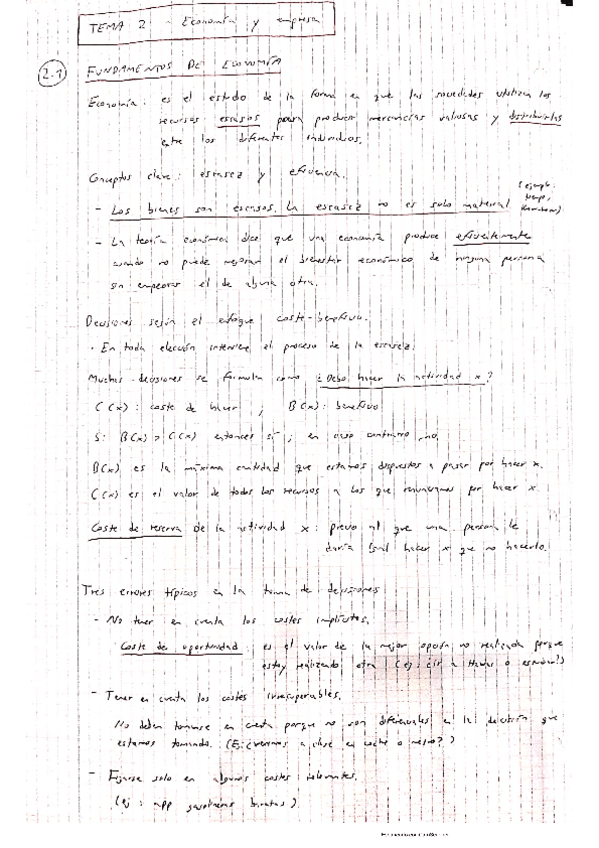 TEMA 2 - Economía y empresa
2.1 FUNDAMENTOS DE ECONOMÍA
Economía: es el estudio de la forma en que las sociedades utilizan los
recursos escasos para producir mercancías valiosas y distribuirlas
entre los diferentes individuos.
Conceptos clave: escasez y eficiencia.
- Los bienes son escasos. La escasez no es solo material (ejemplo: tiempo,
- La teoría económica dice que una economía produce eficientemente
cuando no puede mejorar el bienestar económico de ninguna persona
sin empeorar el de alguna otra.
Decisiones según el enfoque coste-beneficio.
· En toda elección interviene el proceso de la escasez.
Muchas decisiones se formulan como ¿Debo hacer la actividad x?
C(x): coste de hacer ; B(x): beneficio
Si B(x) > C(x) entonces sí ; en caso contrario, no.
B(x) es la máxima cantidad que estamos dispuestos a pagar por hacer x.
C(x) es el valor de todos los recursos a los que renunciamos por hacer x.
Coste de reserva de la actividad x: precio al que una persona le
daría igual hacer x que no hacerlo.
Tres errores típicos en la toma de decisiones
- No tener en cuenta los costes implícitos.
Coste de oportunidad: es el valor de la mejor opción no realizada porque
estoy realizando otra (ej: ¿ir a o estudiar?)
- Tener en cuenta los costes irrecuperables.
No deben tomarse en cuenta porque no son diferenciales en la decisión que
estamos tomando. (Ej: ¿venimos a clase en coche o metro?)
- Fijarse solo en algunos costes relevantes.
(ej: app gasolineras baratas)